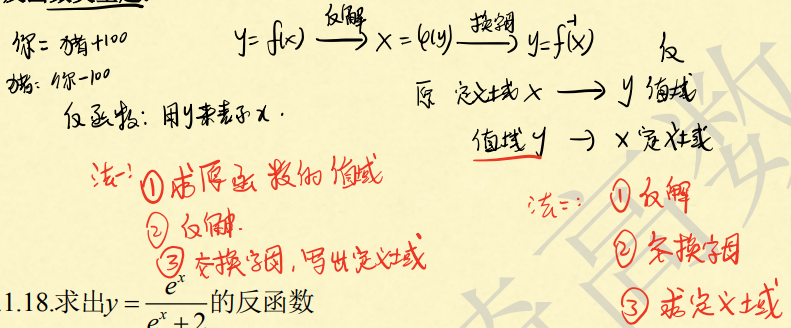 你=猪+100
猪:你-100
反函数:用y来表示x.
y=f(x) 反解→ x=φ(y) 换字母→ y=f⁻¹(x)
反
原 定义域 x → y 值域
值域 y → x 定义域
法一:①求原函数的值域
②反解.
③交换字母,写出定义域
法二:①反解
②交换字母
③求定义域
1.18.求出y=e^x/(e^x+2)的反函数
高数